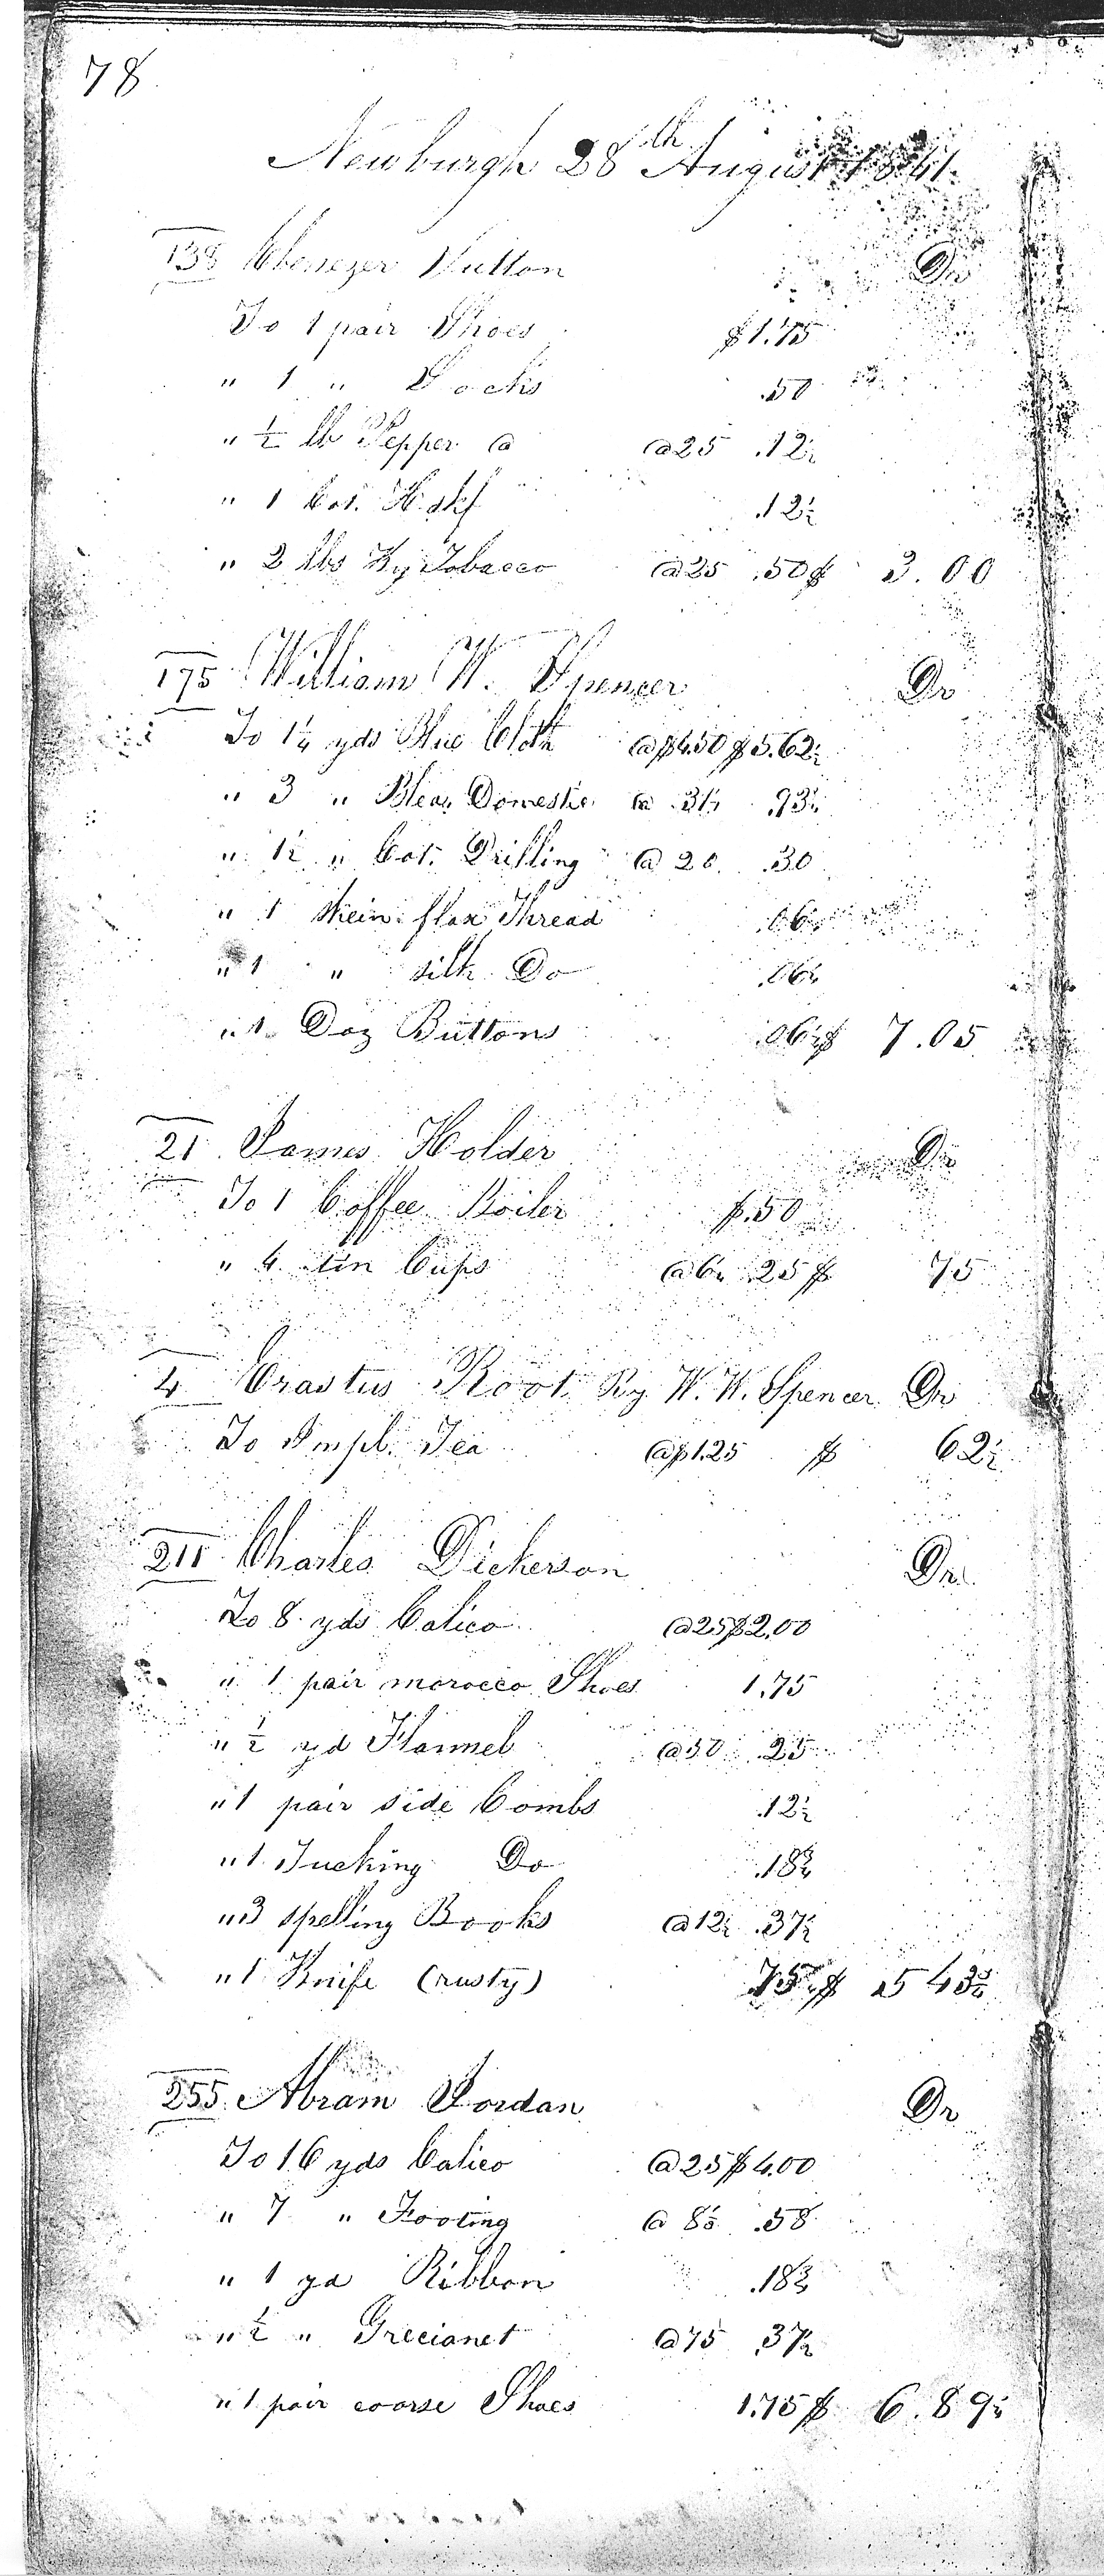 78
Newburgh 28th August 1841.
138 Ebenezer Sutton Dr
To 1 pair Shoes $1.75
" 1 " Socks .50
" ½ lb Pepper @ @25 .12½
" 1 Cot. Hdkf .12½
" 2 lbs Ky Tobacco @25 .50 $ 3.00
175 William W. Spencer Dr
To 1¼ yds Blue Cloth @$4.50 $5.62½
" 3 " Blea. Domestic @ .31¼ .93¾
" 1½ " Cot. Drilling @ 20 .30
" 1 Skein flax Thread .06¼
" 1 " silk Do .06¼
" 1 Doz Buttons .06¼ $ 7.05
21 James Holder Dr
To 1 Coffee Boiler $.50
" 4 tin Cups @6¼ .25 $ 75
4 Erastus Root By W. W. Spencer Dr
To Impl. Tea @$1.25 $ 62½
211 Charles Dickerson Dr
To 8 yds Calico @25 $2.00
" 1 pair morocco Shoes 1.75
" ½ yd Flannel @50 .25
" 1 pair side Combs .12½
" 1 Tucking Do .18¾
" 3 spelling Books @12½ .37½
" 1 Knife (rusty) .75 $ 5 43¾
255 Abram Jordan Dr
To 16 yds Calico @25 $4.00
" 7 " Footing @ 8⅓ .58
" 1 yd Ribbon .18¾
" ½ " Grecianet @75 .37½
" 1 pair coarse Shoes 1.75 $ 6.89¼